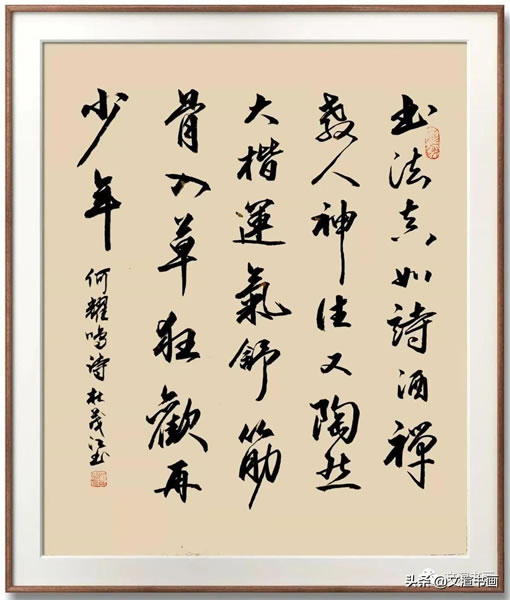 书法真如詩酒禪
教人神往又陶然
大楷運氣舒筋
骨入草狂歡再
少年 何耀鸣诗 杜茂
头条 @文澶书画